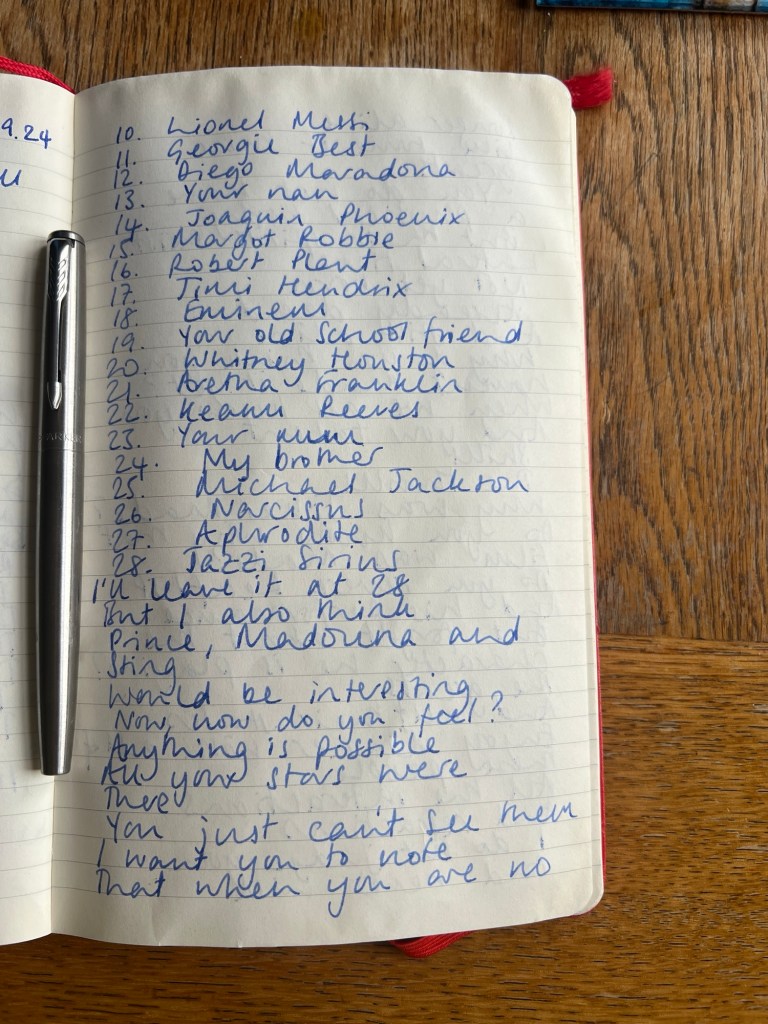 9.24
u
10. Lionel Messi
11. George Best
12. Diego Maradona
13. Your nan
14. Joaquin Phoenix
15. Margot Robbie
16. Robert Plant
17. Jimi Hendrix
18. Eminem
19. Your old school friend
20. Whitney Houston
21. Aretha Franklin
22. Keanu Reeves
23. Your mum
24. My brother
25. Michael Jackson
26. Narcissus
27. Aphrodite
28. Jazzi Sirius
I'll leave it at 28
But I also think
Prince, Madonna and
Sting
Would be interesting
Now, how do you feel?
Anything is possible
All your stars were
There
You just can't see them
I want you to note
That when you are no
PARKER